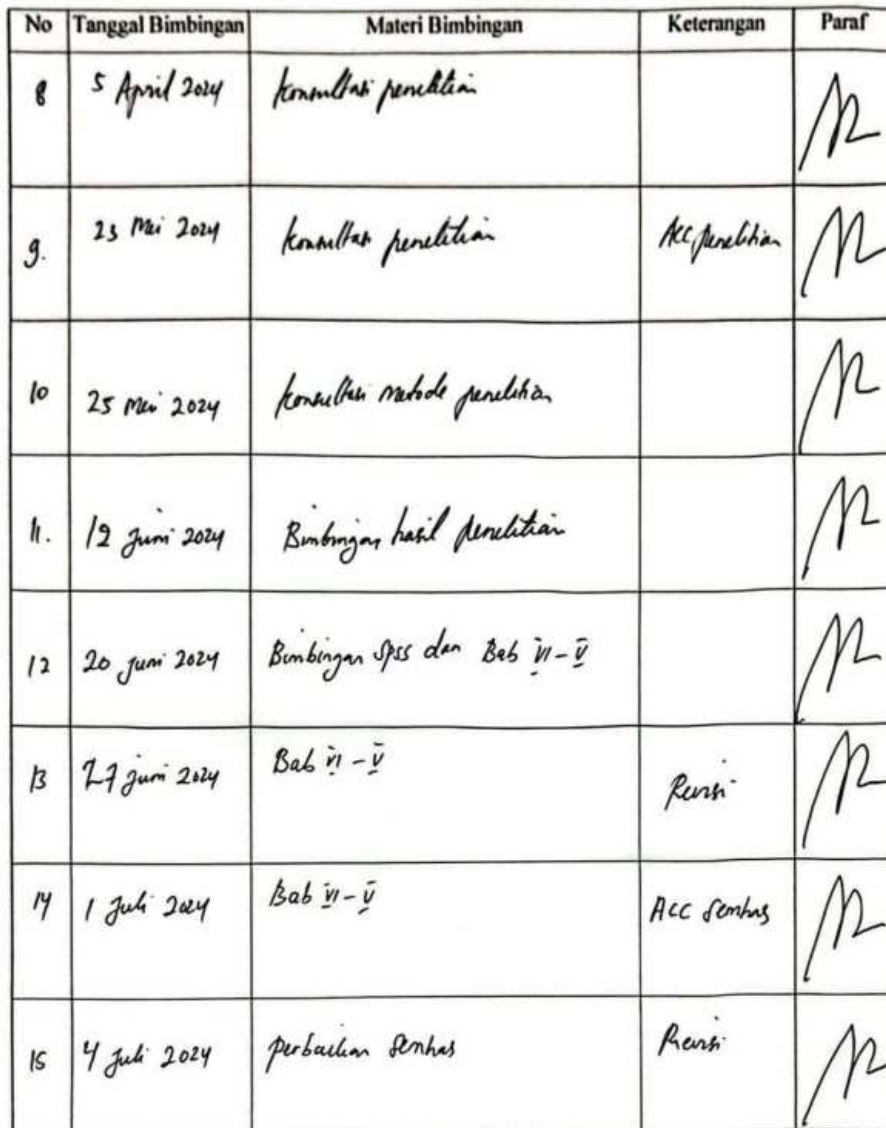 No Tanggal Bimbingan Materi Bimbingan Keterangan Paraf
8 5 April 2024 konsultasi penelitian
9. 23 Mei 2024 konsultasi penelitian Acc penelitian
10 25 Mei 2024 konsultasi metode penelitian
11. 12 Juni 2024 Bimbingan hasil penelitian
12 20 Juni 2024 Bimbingan Spss dan Bab VI - V
13 27 Juni 2024 Bab VI - V Revisi
14 1 Juli 2024 Bab VI - V ACC Semhas
15 4 Juli 2024 perbaikan Semhas Revisi